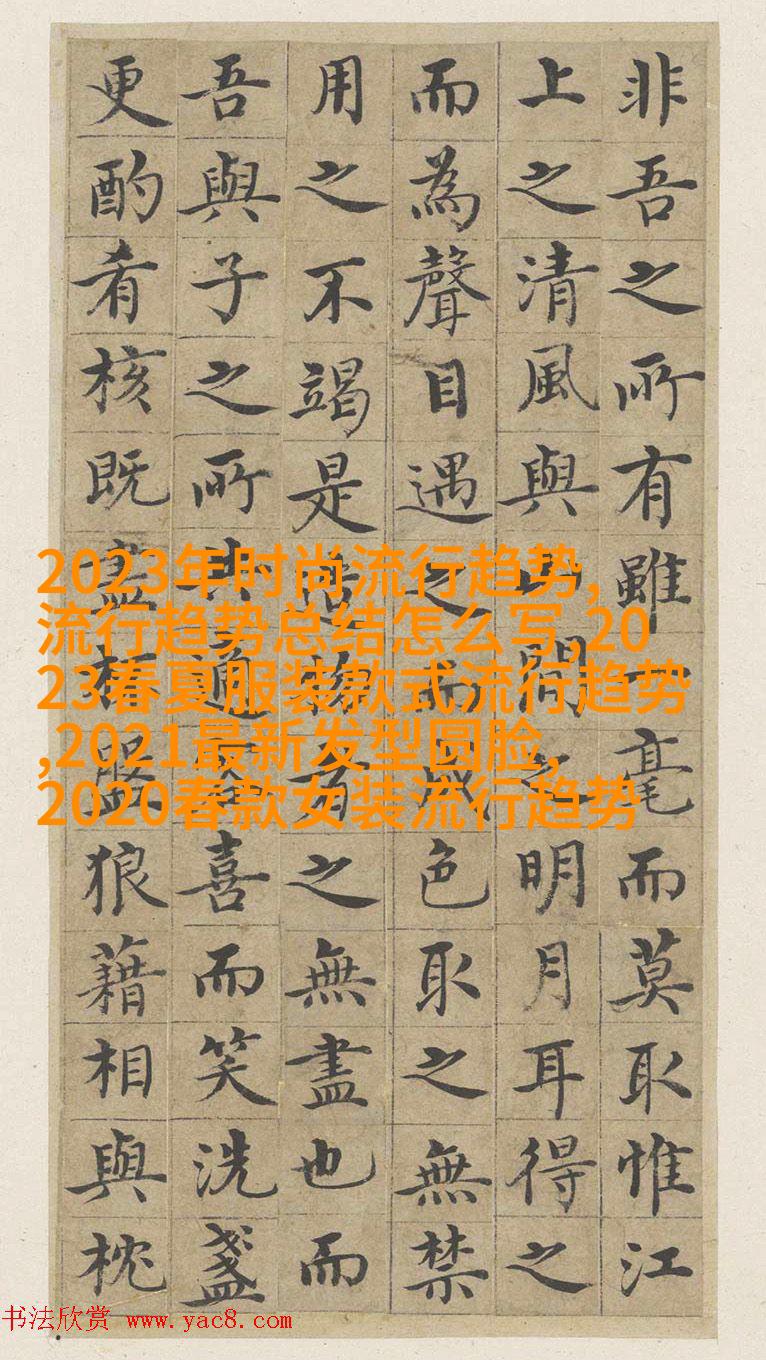 非吾之所有雖一毫而莫取惟江
上之清風與山間之明月耳得之
而為聲目遇之而成色取之無禁
用之不竭是造物者之無盡也而
吾與子之所共適客喜而笑洗盞
更酌肴核既盡杯盤狼藉相與枕
2023年时尚流行趋势,
流行趋势总结怎么写,20
23春夏服装款式流行趋势
,2021最新发型圆脸,
2020春款女装流行趋势
书法欣赏 www.yac8.com